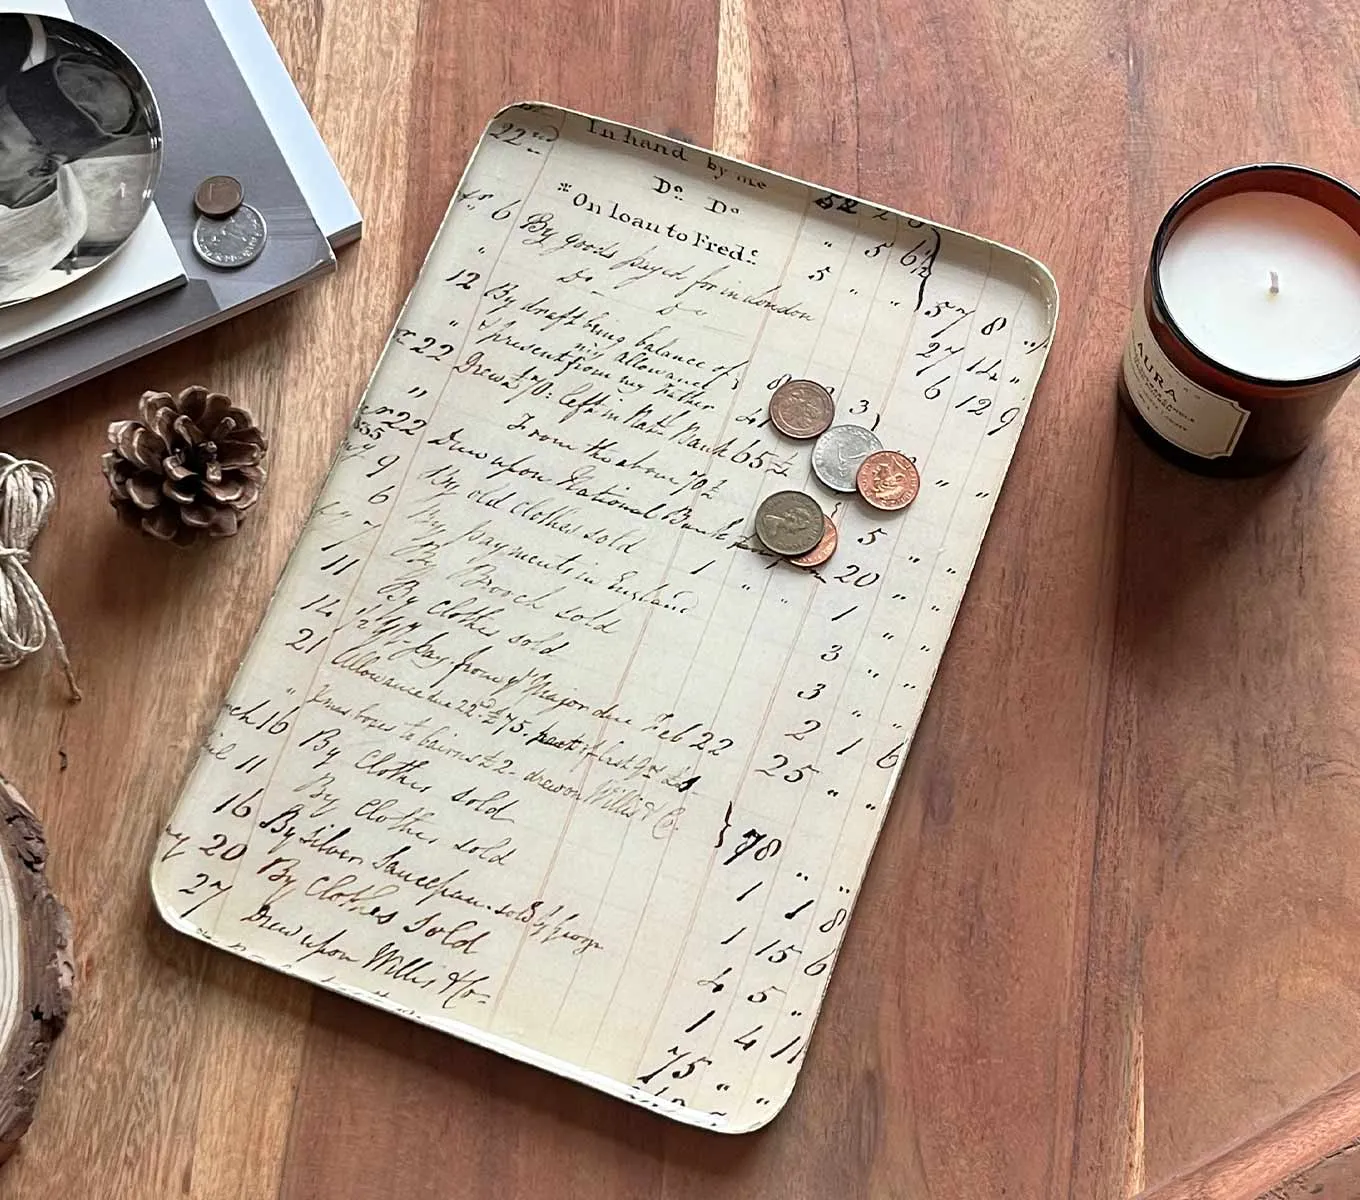 22nd In hand by me
Do. Do.
* On loan to Fred:
6 By goods payed for in London
" Do - Do 5 " "
12 By draft being balance of
my allowance
" present from my Father
22 Drew £70: left in Natl Bank 65£
" From the above 70£
22 Drew upon National Bank
9 By old Clothes sold
6 By payments in England
By Brooch sold
11 By Clothes sold
14 pay from Major due Feb 22
21 Allowance due 22nd £75. part of last
" Xmas boxes to bairns £2. drew on Willis & Co.
16 By Clothes sold
11 By Clothes sold
16 By Silver Saucepan sold
20 By Clothes Sold
27 Drew upon Willis & Co.
5 6½
57 8 "
27 14 "
6 12 9
5 " "
20 " "
1 " "
3 " "
3 " "
2 1 6
25 " "
78 " "
1 1 8
1 15 6
4 5 "
1 4 11
75 " "
AURA